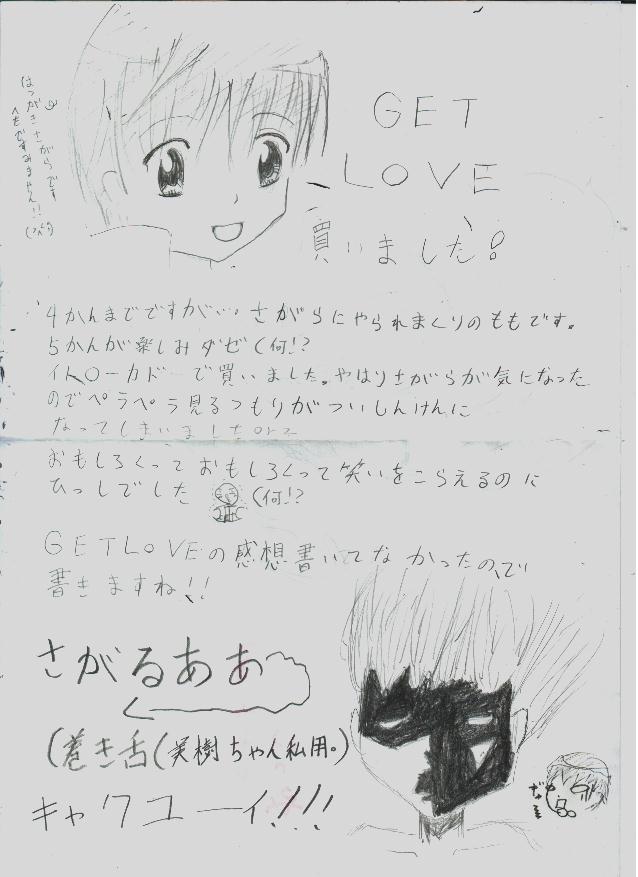 GET
LOVE
買いました!
はつがきさがらです
へたですみません!!
4かんまでですがい。さがらにやられまくりのももです。
5かんが楽しみダゼ(何!?
イトローカドーで買いました。やはりさがらが気になった
のでペラペラ見るつもりがついしんけんに
なってしまいましたorz
おもしろくっておもしろくって笑いをこらえるのに
ひっしでした(何!?
GETLOVEの感想書いてなかったので
書きますね!!
さがるああ
(巻き舌(実樹ちゃん私用。)
キャワユーイ!!!